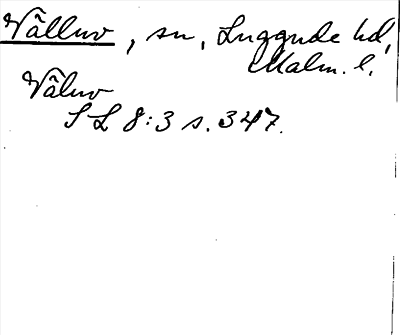 Vålluv, sn, Luggude hd,
Malm. l.
Våluv
SL 8:3 s. 347.